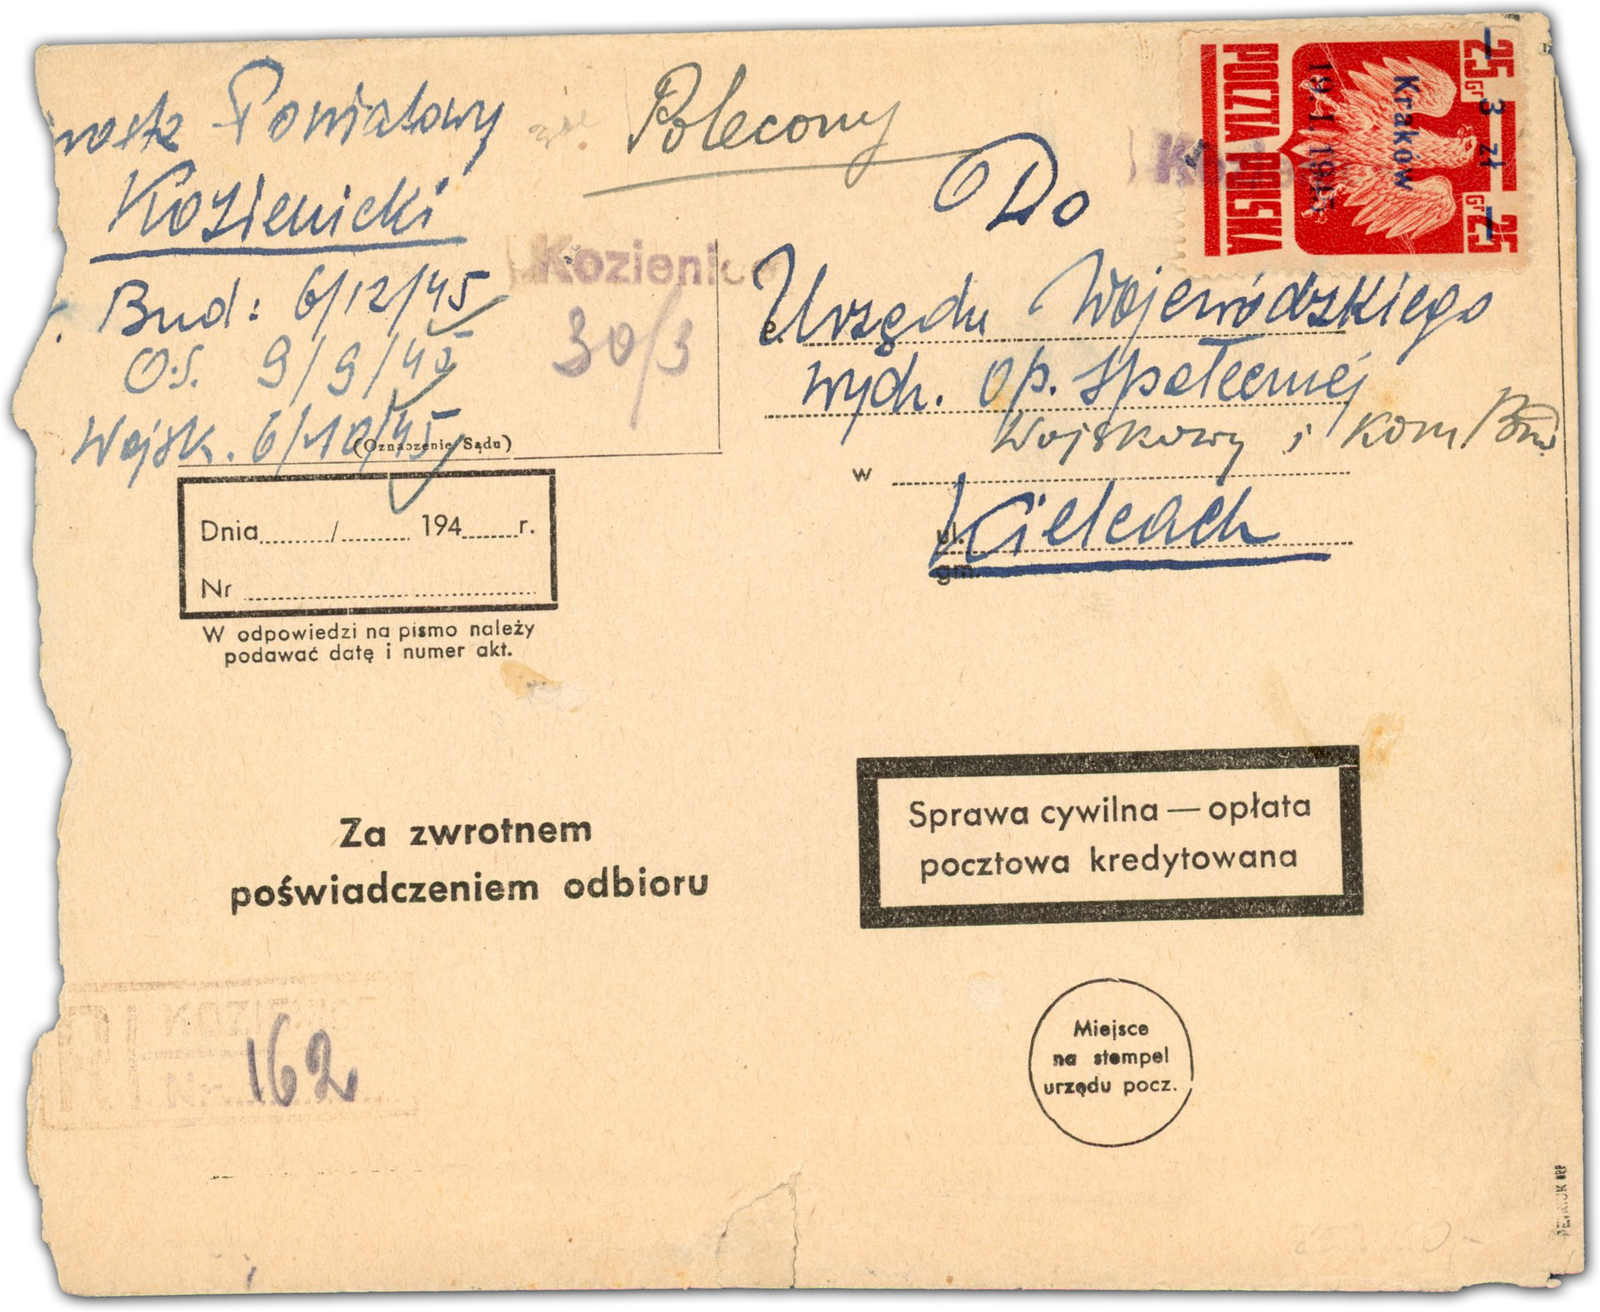 Powiatowy
Kozienicki
Bud: 6/12/45
O.S. 9/9/45
Wojsk. 6/10/45
(Oznaczenie Sądu)
Polecony
Kozienic
30/3
25 Gr 3 zł Gr 25
Kraków
19.1.1945
POCZTA POLSKA
Do
Urzędu Wojewódzkiego
wydz. Op. Społecznej
Wojskowy i Kom Bud
w
Kielcach
ul.
gm.
Dnia / 194 r.
Nr
W odpowiedzi na pismo należy
podawać datę i numer akt.
Za zwrotnem
poświadczeniem odbioru
Sprawa cywilna — opłata
pocztowa kredytowana
Miejsce
na stempel
urzędu pocz.
162